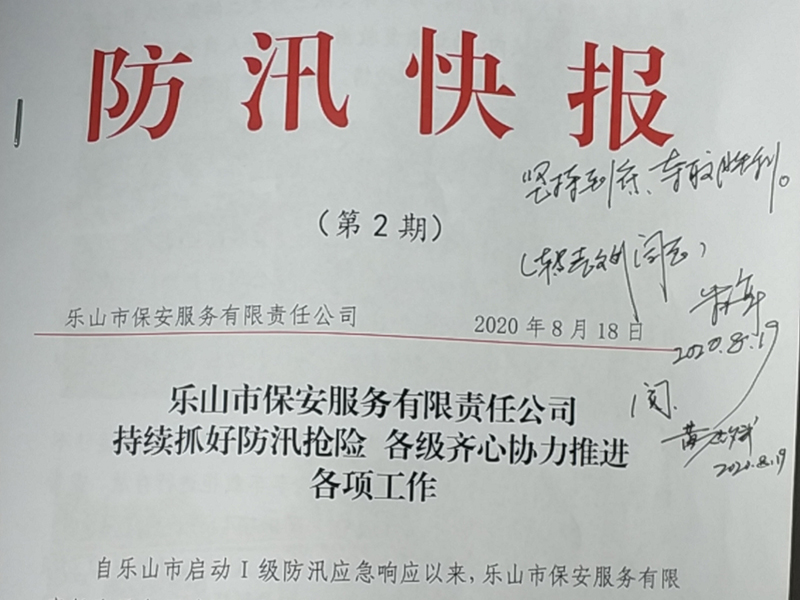 防汛快报
坚持到底、夺取胜利。
（第2期）
乐山市保安服务有限责任公司 2020年8月18日
2020.8.19
乐山市保安服务有限责任公司
阅.
持续抓好防汛抢险 各级齐心协力推进
2020.8.19
各项工作
自乐山市启动Ⅰ级防汛应急响应以来，乐山市保安服务有限